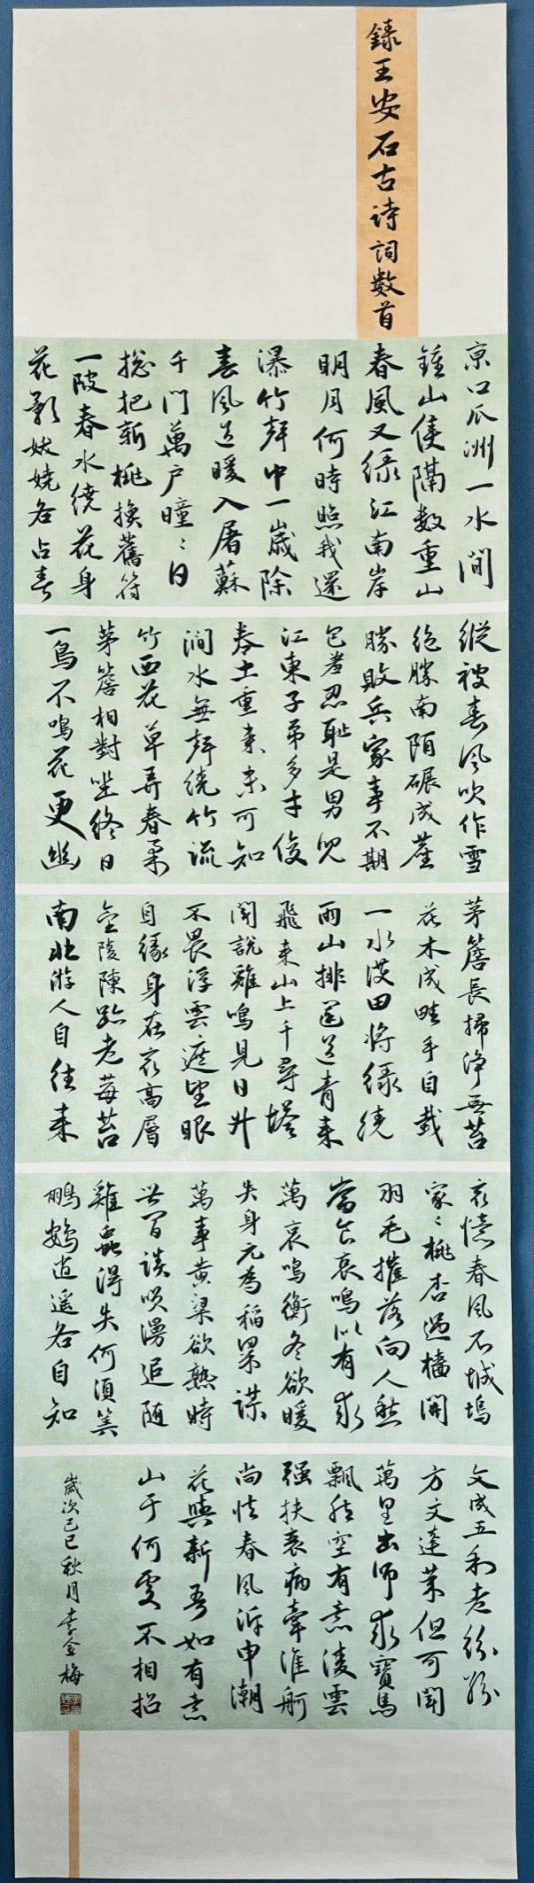 録王安石古诗詞數首
京口瓜洲一水間
鍾山隻隔數重山
春風又緑江南岸
明月何時照我還
瀑竹聲中一歲除
春風送暖入屠蘇
千門萬户曈〻日
總把新桃換舊符
一陂春水繞花身
花影妖嬈各占春
縱被春風吹作雪
絶勝南陌碾成塵
勝敗兵家事不期
包羞忍恥是男兒
江東子弟多才俊
卷土重来未可知
澗水無聲繞竹流
竹西花草弄春柔
茅簷相對坐終日
一鳥不鳴花更幽
茅簷長掃淨無苔
花木成畦手自栽
一水護田将緑繞
兩山排闥送青来
飛来山上千尋塔
聞説雞鳴見日升
不畏浮雲遮望眼
自緣身在最高層
金陵陳跡老莓苔
南北游人自往来
最憶春風石城塢
家〻桃杏過牆開
羽毛摧落向人愁
當食哀鳴似有求
萬裏鳴衡冬欲暖
失身元為稻粱謀
萬事黄粱欲熟時
世間談笑漫追隨
雞蟲得失何須算
鵬鷃逍遥各自知
文成五利老紛紛
方丈蓬萊但可聞
萬里出師求寶馬
飄然空有意凌雲
强扶衰病牽淮舸
尚怯春風泝申潮
花與新吾如有意
山于何處不相招
歲次己巳秋月李金梅